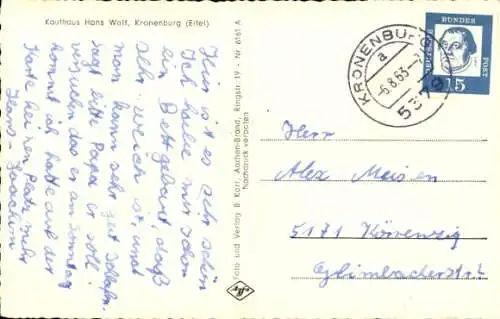 Kaufhaus Hans Wolf, Kronenburg (Eifel)
Hier ist es sehr schön
Ich habe mir schon
ein Bett gebaut, daß
sehr weich ist, und
man kann sehr gut schlafen.
sagt bitte Papa er soll
versuchen das er am Sonntag
kommt ich hatte auf der
Karte keinen Platz mehr
Jens Joachim
Foto und Verlag B. Korr, Aachen-Brand, Ringstr. 19 - Nr. 6161 A
Nachdruck verboten
KRONENBURG
a
-6.8.63
5379
DEUTSCHE BUNDESPOST
15
Herrn
Alex Meisen
5171 Körrenzig
Glimbacherstr.